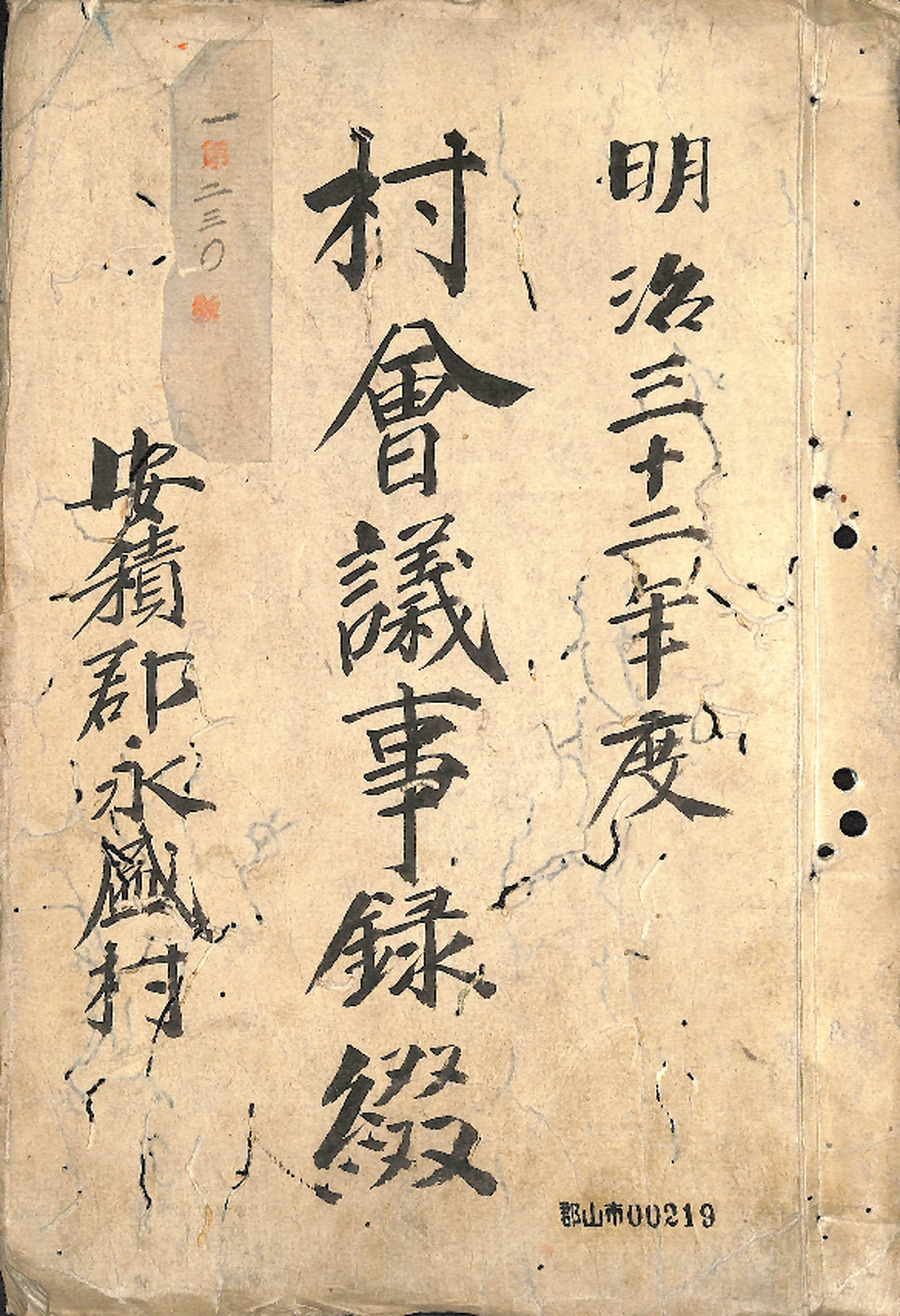 明治三十二年度
村會議事錄綴
一第二三〇號
安積郡永盛村
郡山市00219